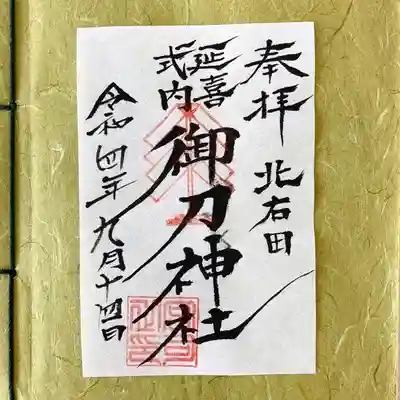 奉拝
北右田
延喜
式内
御刀神社
令和四年九月十四日